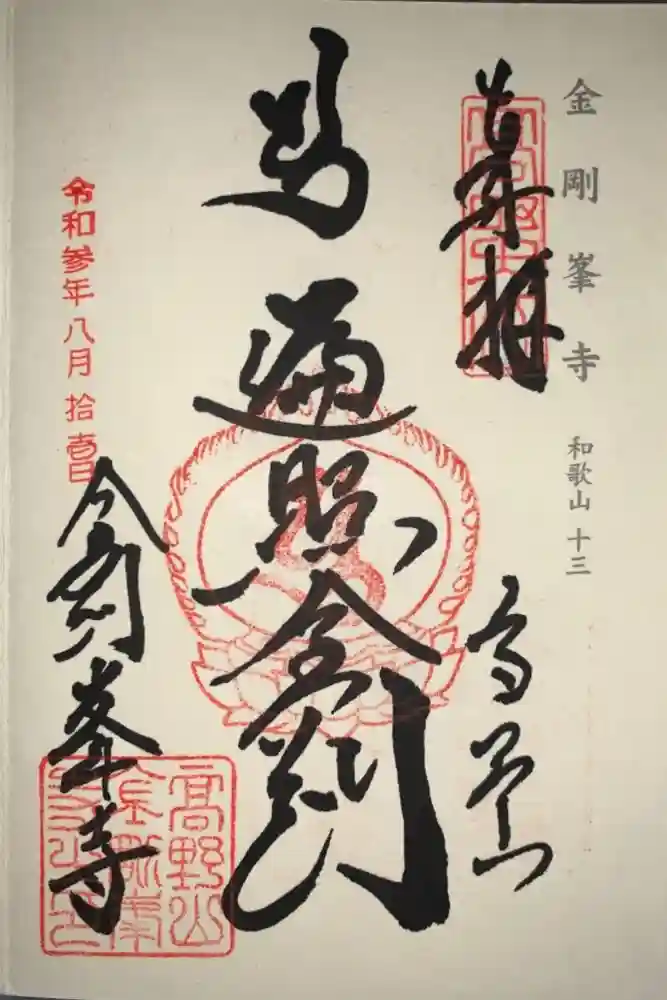 金剛峯寺 和歌山 十三
奉拝
高野山
遍照金剛
令和参年八月拾壱日
金剛峯寺
高野山